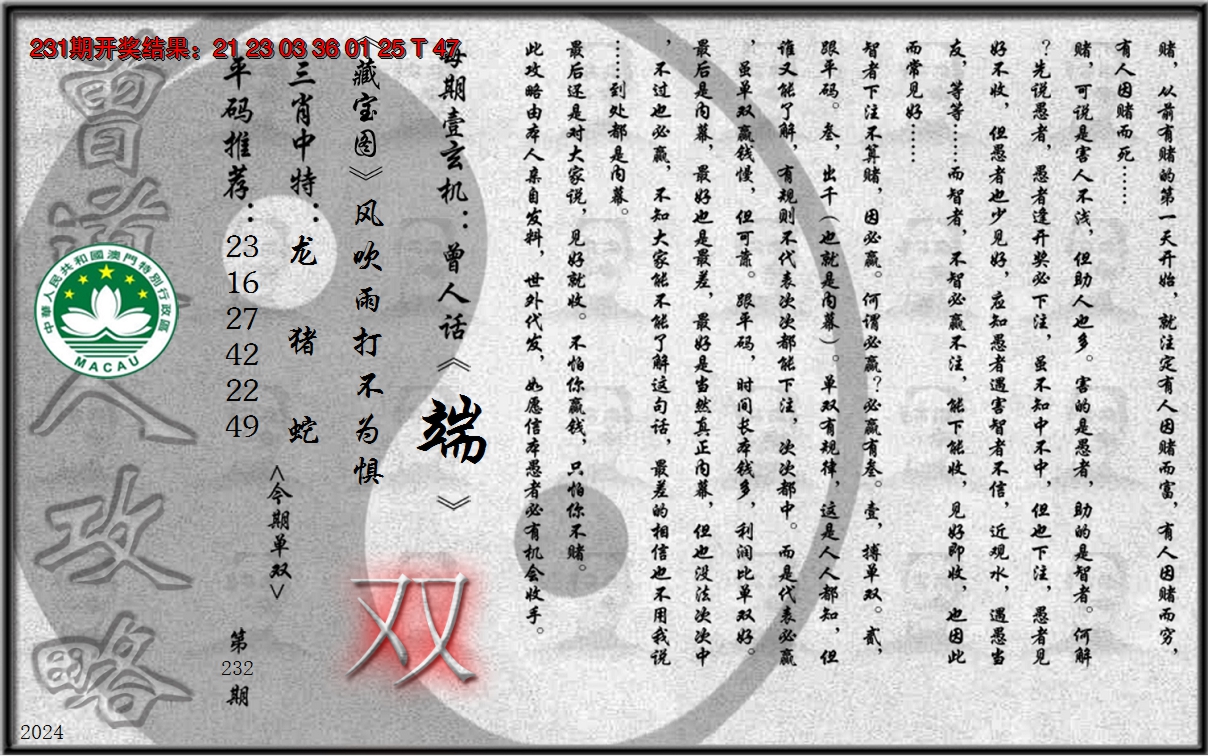 231期开奖结果：21 23 03 36 01 25 T 47
赌，从前有赌的第一天开始，就注定有人因赌而富，有人因赌而穷，
有人因赌而死……
赌，可说是害人不浅，但助人也多。害的是愚者，助的是智者。何解
？先说愚者，愚者逢开奖必下注，虽不知中不中，但也下注，愚者见
好不收，但愚者也少见好，应知愚者遇害智者不信，近观水，遇愚当
友，等等……而智者，不智必赢不注，能下能收，见好即收，也因此
而常见好……
智者下注不算赌，因必赢。何谓必赢？必赢有叁。壹，搏单双。贰，
跟平码。叁，出千（也就是内幕）。单双有规律，这是人人都知，但
谁又能了解，有规则不代表次次都能下注，次次都中。而是代表必赢
，虽单双赢钱慢，但可靠。跟平码，时间长本钱多，利润比单双好。
最后是内幕，最好也是最差，最好是当然真正内幕，但也没法次次中
，不过也必赢，不知大家能不能了解这句话，最差的相信也不用我说
……到处都是内幕。
最后还是对大家说，见好就收。不怕你赢钱，只怕你不赌。
此攻略由本人亲自发料，世外代发，如愿信本愚者必有机会收手。
每期壹玄机：曾人话《端》
《藏宝图》风吹雨打不为惧
三肖中特：龙 猪 蛇
平码推荐：23 16 27 42 22 49
<今期单双>
双
第232期
曾道人攻略
中華人民共和國澳門特別行政區
MACAU
2024